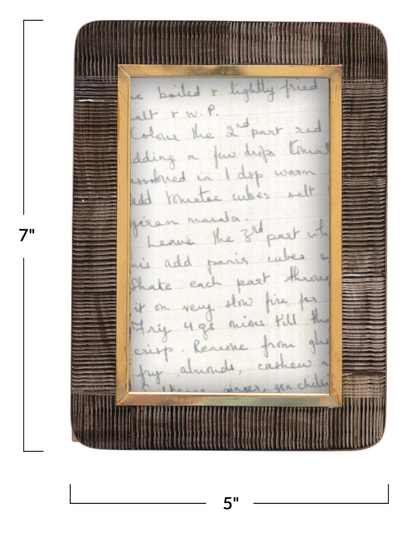 e boiled & lightly fried
alt & w.P.
Colour the 2nd part red
dding a few drops tomat
issolved in 1 dsp warm
Add tomatoe cubes salt
garam masala.
Leave the 3rd part whi
his add panir cubes &
Shake each part throu
it on very slow fire for
Fry 4 gs onions till th
crisp. Remove from ghe
fry almonds, cashew n
ginger, grn chilli
7"
5"